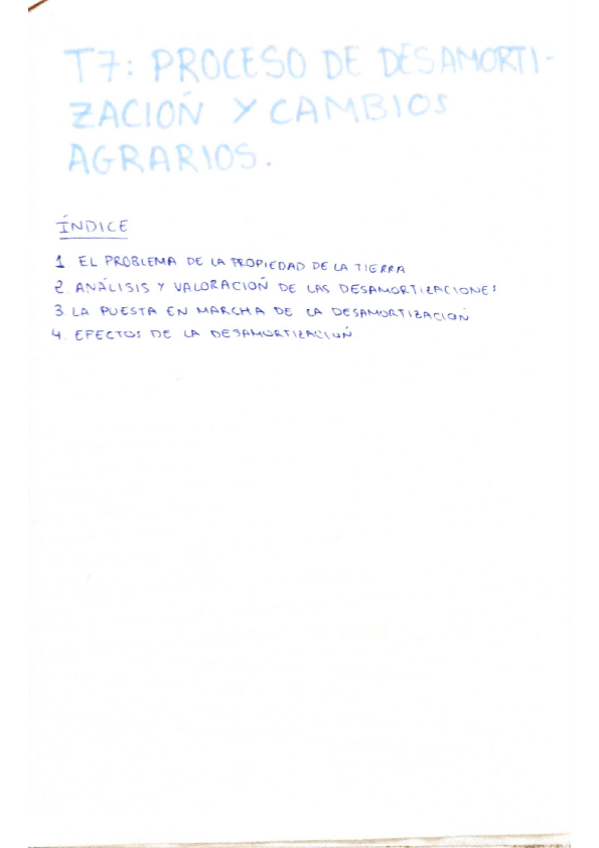 T7: PROCESO DE DESAMORTI-
ZACIÓN Y CAMBIOS
AGRARIOS.
ÍNDICE
1 EL PROBLEMA DE LA PROPIEDAD DE LA TIERRA
2 ANÁLISIS Y VALORACIÓN DE LAS DESAMORTIZACIONES
3. LA PUESTA EN MARCHA DE LA DESAMORTIZACIÓN
4. EFECTOS DE LA DESAMORTIZACIÓN